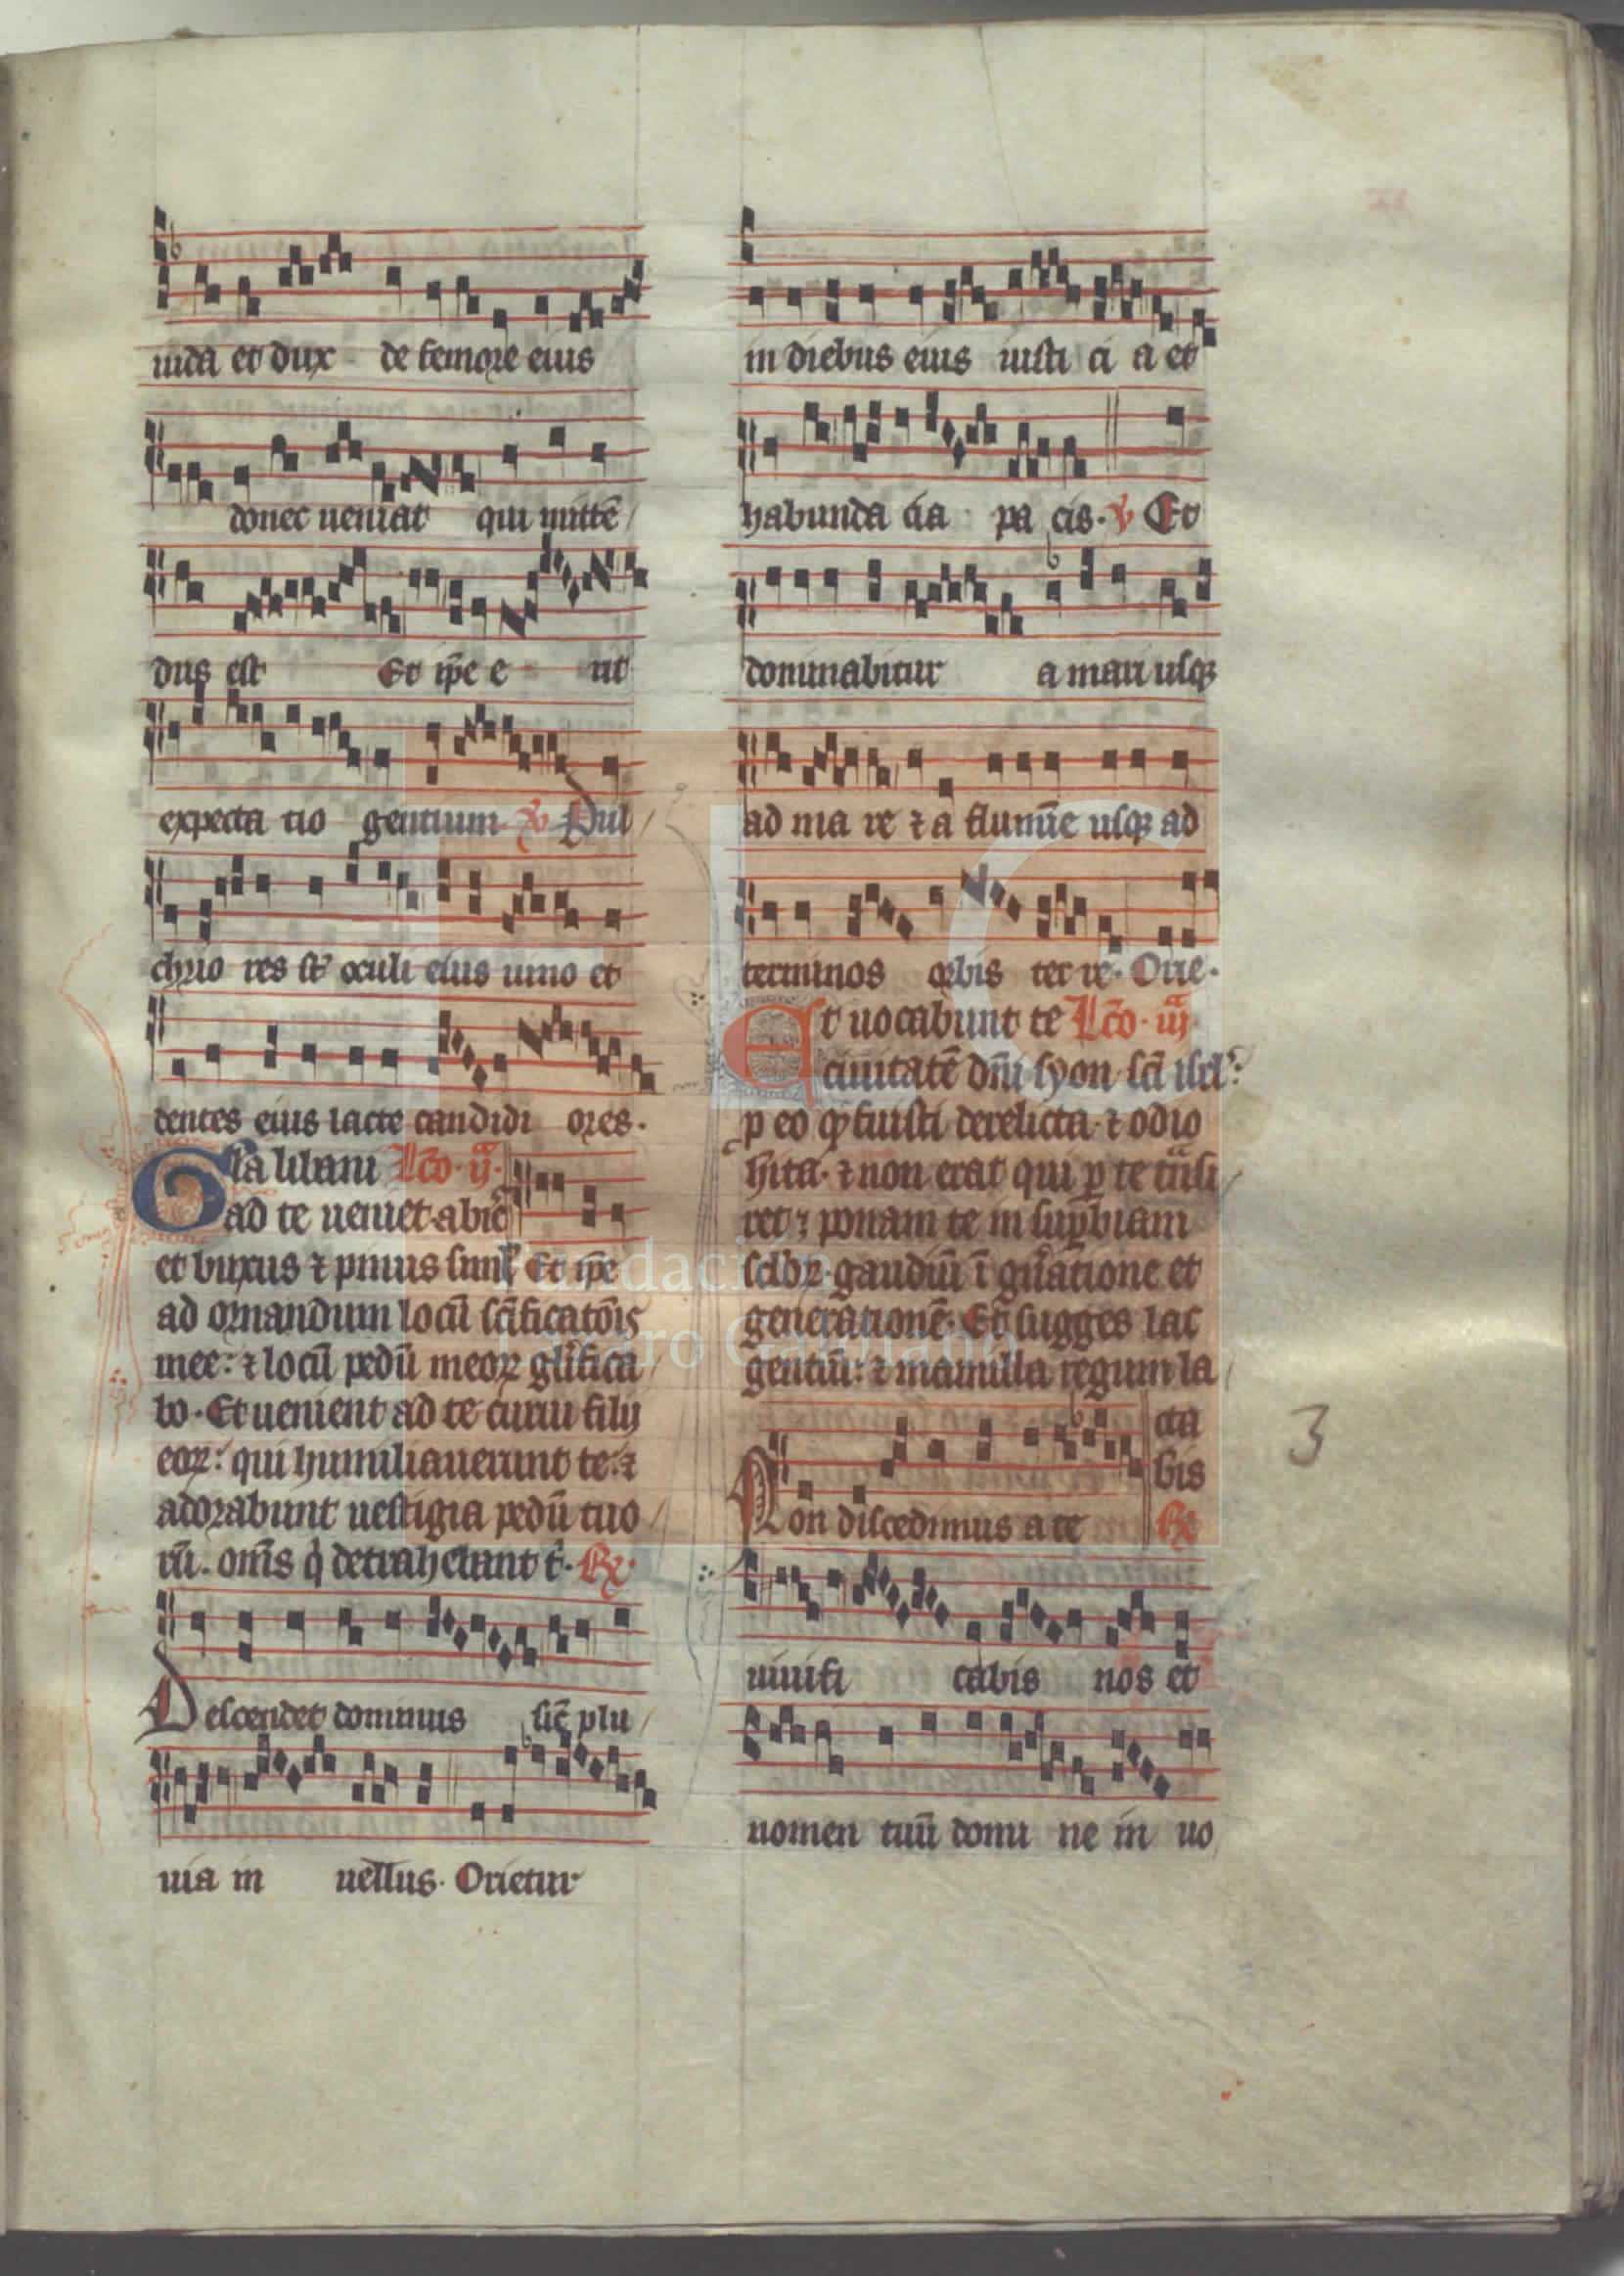 iuda et dux de femore eius
donec ueniat qui mittē/
dus est Et ip̄e e rit
expecta tio gentium ℣ Pul/
chrio res st̄ oculi eius uino et
dentes eius lacte candidi ores.
Gla libani Lc̄o. ijᵃ.
ad te ueniet. abies
et buxus ⁊ pinus simł Et ip̄e
ad ornandum locū sc̄ificatōis
mee: ⁊ locū pedū meoꝝ gl̄ifica/
bo. Et uenient ad te curui filij
eoꝝ: qui humiliauerunt te: ⁊
adorabunt uestigia pedū tuo/
rū. om̄s q̇ detrahebant t̄. ℟.
Descendet dominus sic̄ plu/
uia in uellus. Orietur
in diebus eius iusti ci a et
habunda cia pa cis. ℣ Et
dominabitur a mari usqꝫ
ad ma re ⁊ a flumīe usqꝫ ad
terminos orbis ter re. Orie.
Et uocabunt te Lc̄o. iijᵃ
ciuitatē dn̄i syon. sc̄i isrl̄:
p eo ꝙ fuisti derelicta. ⁊ odio
hita. ⁊ non erat qui ꝑ te trāsi/
ret: ponam te in suꝑbiam
sc̄loꝝ. gaudiū ī gn̄atione et
generationē. Et sugges lac
gentiū: ⁊ mamilla regum la/
cta
bis
℟
Non discedimus a te
uiuifi cabis nos et
nomen tuū domi ne in uo/
3
Fundación
Álvaro Galmiant